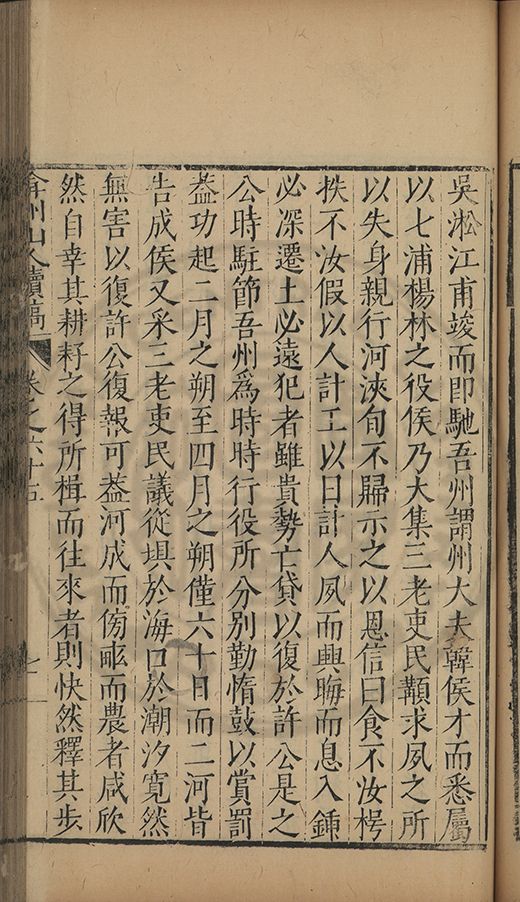 吳淞江甫竣而即馳吾州謂州大夫韓侯才而悉屬
以七浦楊林之役侯乃大集三老吏民顜求夙之所
以失身親行河浹旬不歸示之以恩信曰食不汝枵
抶不汝假以人計工以日計人夙而興晦而息入鍾
必深遷土必遠犯者雖貴勢亡貸以復於許公是之
公時駐節吾州爲時時行役所分別勤惰鼓以賞罰
葢功起二月之朔至四月之朔僅六十日而二河皆
告成侯又采三老吏民議從埧於海口於潮汐寛然
無害以復許公復報可葢河成而傍畝而農者咸欣
然自幸其耕耔之得所楫而往來者則快然釋其步
弇州山人續稿 卷之六十五